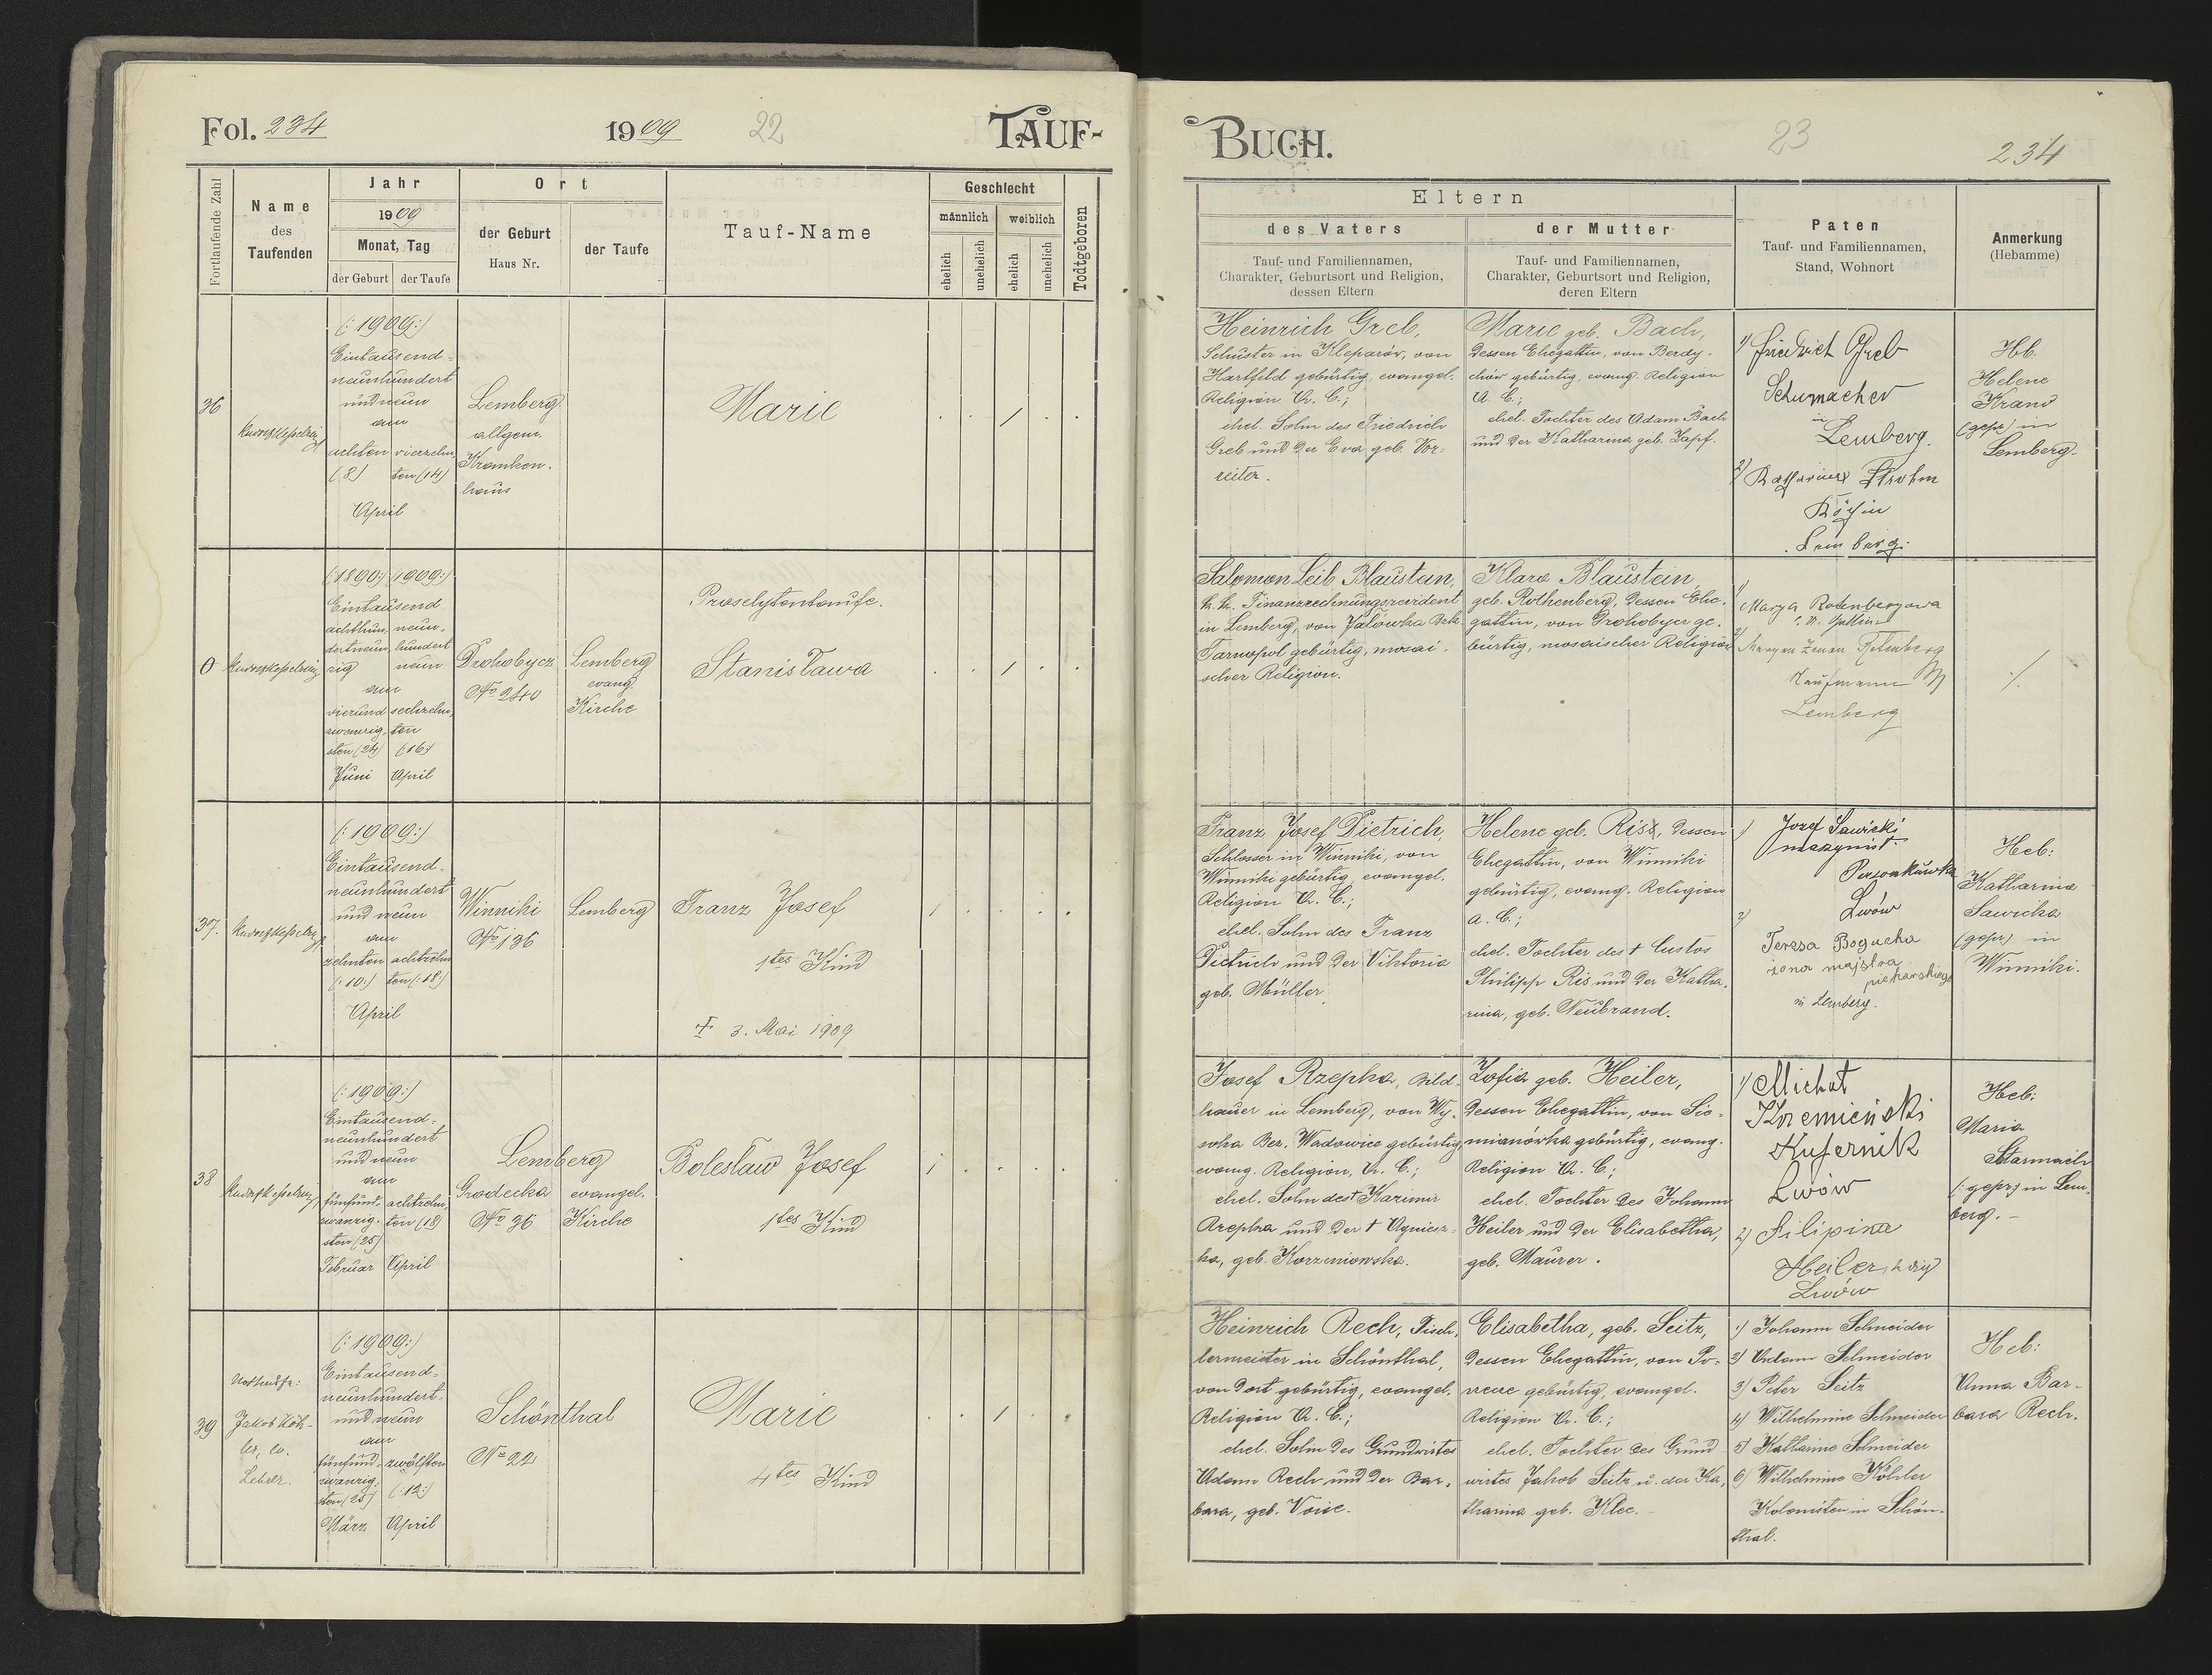 Fol. 234
1909
22
TAUF-
Fortlaufende Zahl
Name
des
Taufenden
Jahr
1909
Monat, Tag
der Geburt
der Taufe
Ort
der Geburt
Haus Nr.
der Taufe
Tauf-Name
Geschlecht
männlich
weiblich
ehelich
unehelich
ehelich
unehelich
Todtgeboren
36
(:1909:)
Eintausend-
neunhundert
und neun
am
achten
(8)
vierzehn-
ten (14)
April
Lemberg
allgem.
Kranken-
haus
Marie
0
(:1890:)
Eintausend
achthun-
dertneun-
zig
am
vierund
zwanzig-
sten (24)
Juni
(1909:)
neun-
hundert
neun
sechzehn-
ten
(:16:)
April
Drohobycz
No 240
Lemberg
evang.
Kirche
Proselytentaufe.
Stanisława
37.
(:1909:)
Eintausend-
neunhundert
und neun
am
zehnten
(:10:)
achtzehn
ten (:18:)
April
Winniki
No 136
Lemberg
Franz Josef
1tes Kind
† 3. Mai 1909
38
(:1909:)
Eintausend-
neunhundert
und neun
am
fünfund-
zwanzig-
sten (25)
Februar
achtzehn-
ten (18)
April
Lemberg
Grodecka
No 36
evangel.
Kirche
Bolesław Josef
1tes Kind
39
Nottaufe:
Jakob Köh-
ler, ev.
Lehrer.
(:1909:)
Eintausend-
neunhundert-
und neun
am
fünfund-
zwanzig-
sten (25)
März
zwölften
(:12:)
April
Schönthal
No 22
Marie
4tes Kind
BUCH.
23
234
Eltern
des Vaters
Tauf- und Familiennamen,
Charakter, Geburtsort und Religion,
dessen Eltern
der Mutter
Tauf- und Familiennamen,
Charakter, Geburtsort und Religion,
deren Eltern
Paten
Tauf- und Familiennamen,
Stand, Wohnort
Anmerkung
(Hebamme)
Heinrich Greb,
Schuster in Kleparów, von
Hartfeld gebürtig, evangel.
Religion A. C.;
ehel. Sohn des Friedrich
Greb und der Eva geb. Vor-
reiter.
Marie geb. Bach,
dessen Ehegattin, von Berdy-
chów gebürtig, evang. Religion
A. C.;
ehel. Tochter des Adam Bach
und der Katharina geb. Zapf.
1) Friedrich Greb
Schumacher
in
Lemberg.
2) Katharina Strohm
Köchin
Lemberg.
Hb.
Helene
(gepr) in
Lemberg.
Salomon Leib Blaustein,
k. k. Finanzrechnungsrevident
in Lemberg, von Jalowka Bzk
Tarnopol gebürtig, mosai-
scher Religion.
Klara Blaustein,
geb. Rothenberg, dessen Ehe-
gattin, von Drohobycz ge-
bürtig, mosaischer Religion
1) Marya Rotenbergowa
Kaufmann
Lemberg
Franz Josef Dietrich,
Schlosser in Winniki, von
Winniki gebürtig, evangel.
Religion A. C.;
ehel. Sohn des Franz
Dietrich und der Viktoria
geb. Müller.
Helene geb. Riss, dessen
Ehegattin, von Winniki
gebürtig, evang. Religion
A. C.;
ehel. Tochter des † Custos
Philipp Ris und der Katha-
rina, geb. Neubrand.
1) Jozef Sawicki
maszynist.
Lwów
2)
Teresa Bogucka
żona majstra
piekarskiego
in Lemberg.
Heb:
Katharina
Sawicka
(gepr) in
Winniki.
Josef Rzepka, Bild-
hauer in Lemberg, von Wy-
soka Bez. Wadowice gebürtig,
evang. Religion, A. C.;
ehel. Sohn des † Kazimir
Rzepka und der † Agniesz-
ka, geb. Korzeniowska.
Zofia geb. Heiler,
dessen Ehegattin, von Sie-
mianówka gebürtig, evang.
Religion A. C.;
ehel. Tochter des Johann
Heiler und der Elisabetha,
geb. Maurer.
1) Michał
Krzemieński
Lwów
2) Filipina
Heiler,
Lwów
Heb:
Maria
Starmach
(:gepr:) in Lem-
berg. –
Heinrich Rech, Tisch-
lermeister in Schönthal,
von dort gebürtig, evangel.
Religion A. C.;
ehel. Sohn des Grundwirtes
Adam Rech und der Bar-
bara, geb. Voise.
Elisabetha, geb. Seitz,
dessen Ehegattin, von Po-
rzecze gebürtig, evangel.
Religion A. C.;
ehel. Tochter des Grund
wirtes Jakob Seitz u. der Ka-
tharina geb. Klee. –
1) Johann Schneider
2) Adam Schneider
3) Peter Seitz
4) Wilhelmine Schneider
5) Katharine Schneider
6) Wilhelmine Köhler
Kolonisten in Schön-
thal.
Heb:
Anna Bar-
bara Rech.